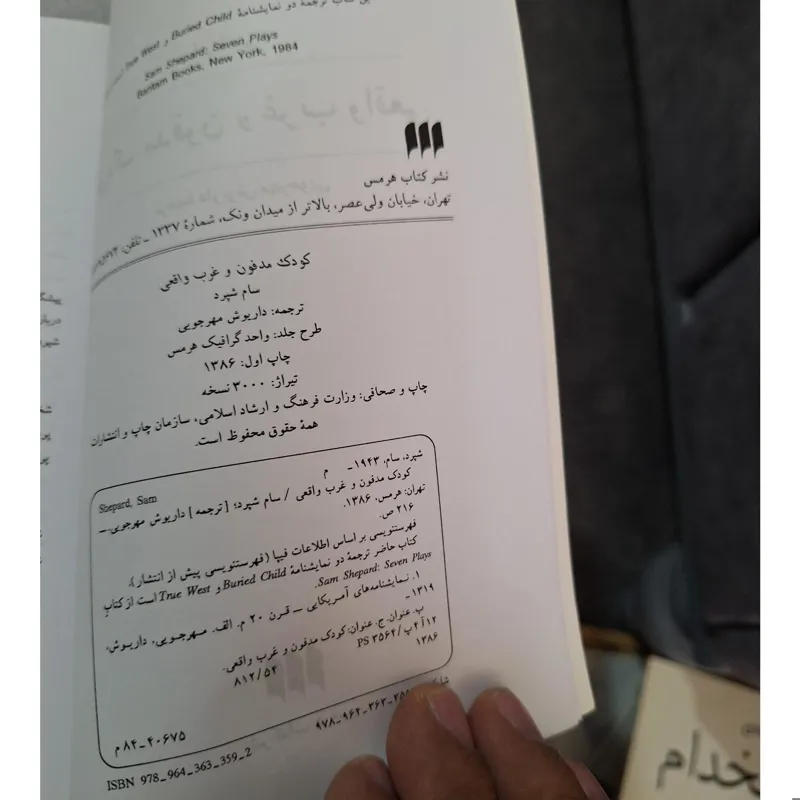 این کتاب ترجمهٔ دو نمایشنامهٔ Buried Child و True West
Sam Shepard: Seven Plays
Bantam Books, New York, 1984
نشر کتاب هرمس
تهران، خیابان ولی‌عصر، بالاتر از میدان ونک، شمارهٔ ۱۳۳۷ ـ تلفن:
کودک مدفون و غرب واقعی
سام شپرد
ترجمه: داریوش مهرجویی
طرح جلد: واحد گرافیک هرمس
چاپ اول: ۱۳۸۶
تیراژ: ۳۰۰۰ نسخه
چاپ و صحافی: وزارت فرهنگ و ارشاد اسلامی، سازمان چاپ و انتشارات
همهٔ حقوق محفوظ است.
شپرد، سام، ۱۹۴۳ـ م
Shepard, Sam
کودک مدفون و غرب واقعی / سام شپرد؛ [ترجمه] داریوش مهرجویی. ـ
تهران: هرمس، ۱۳۸۶.
۲۱۶ ص.
فهرستنویسی بر اساس اطلاعات فیپا (فهرستنویسی پیش از انتشار).
کتاب حاضر ترجمهٔ دو نمایشنامهٔ Buried Child و True West است از کتاب
Sam Shepard: Seven Plays.
۱. نمایشنامه‌های آمریکایی ـ قرن ۲۰ م. الف. مهرجویی، داریوش،
۱۳۱۹ـ
ب. عنوان. ج. عنوان: کودک مدفون و غرب واقعی.
۱۲آ۴پ/PS ۳۵۶۴
۸۱۲/۵۴
۱۳۸۶
۸۴ـ۴۰۶۷۵م
۹۷۸ـ۹۶۴ـ۳۶۳ـ۳۵۹
ISBN 978_964_363_359_2